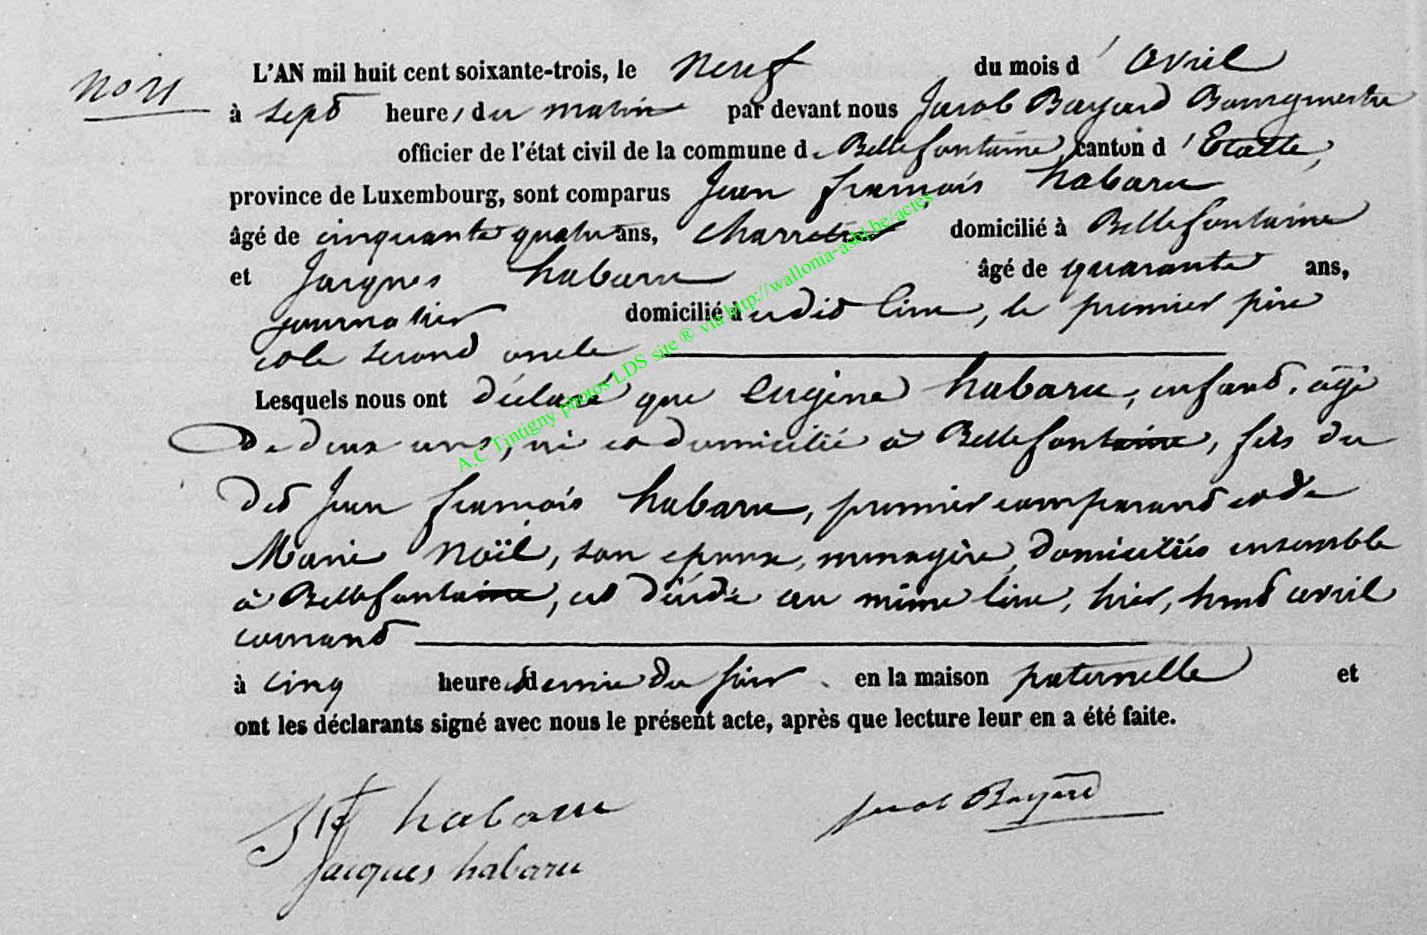 No 11
L'AN mil huit cent soixante-trois, le neuf du mois d'Avril
à sept heures du matin par devant nous Jacob Bayard Bourgmestre
officier de l'état civil de la commune de Bellefontaine, canton d'Etalle,
province de Luxembourg, sont comparus Jean françois habaru
âgé de cinquante quatre ans, charretier domicilié à Bellefontaine
et Jacques habaru âgé de quarante ans,
journalier domicilié à udit lieu, le premier père
et le second oncle
Lesquels nous ont déclaré que Eugène habaru, enfant, âgé
de deux ans, né et domicilié à Bellefontaine, fils du
dit Jean françois habaru, premier comparant et de
Marie Noël, son epouse, menagère, domiciliés ensemble
à Bellefontaine, est décédé au même lieu, hier, huit avril
courant
à cinq heures et demie du soir en la maison paternelle et
ont les déclarants signé avec nous le présent acte, après que lecture leur en a été faite.
habaru Jacob Bayard
Jacques habaru
A.C Tintigny photos LDS site ® via http://wallonia-asbl.be/actes